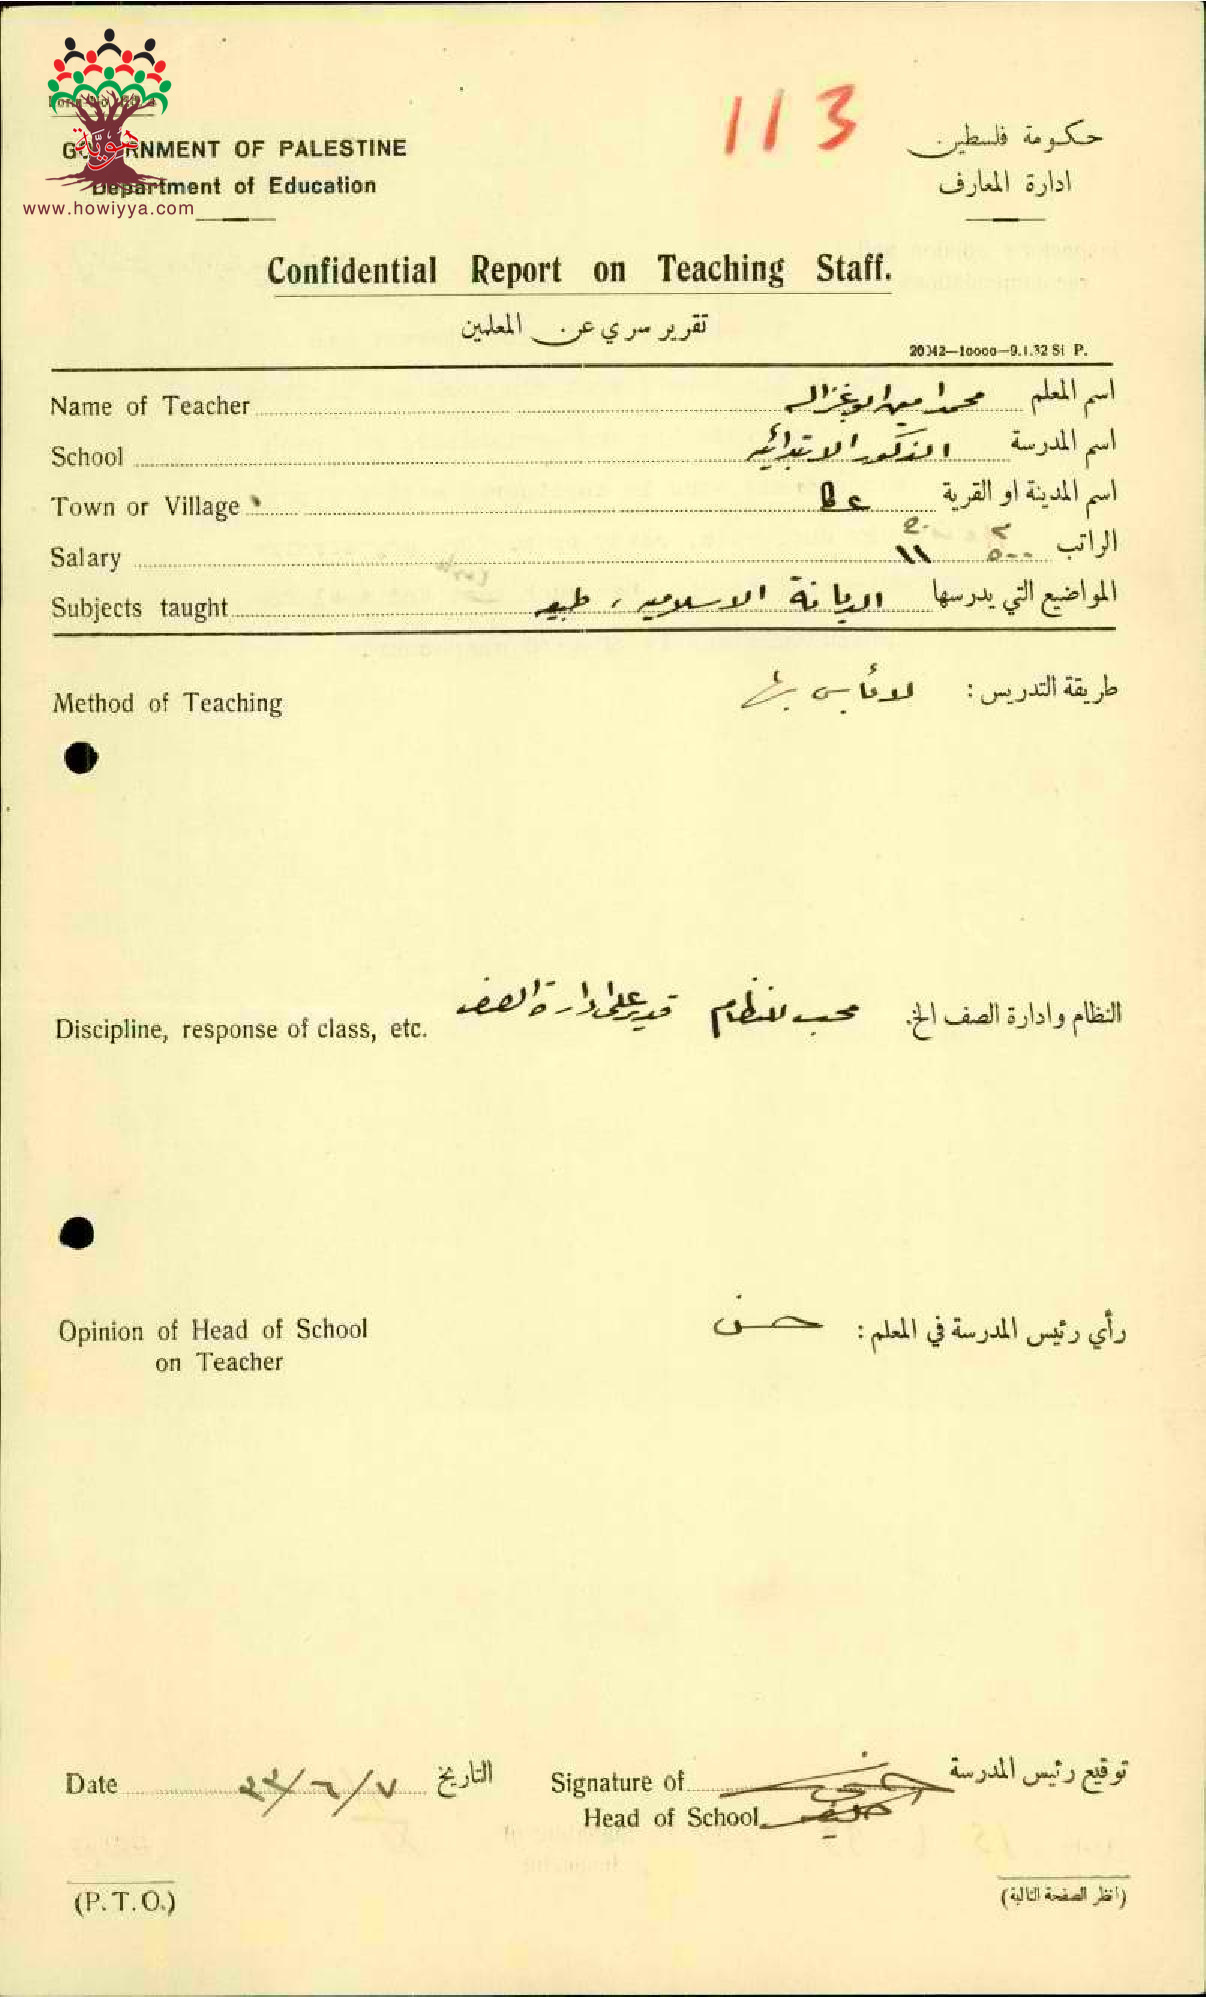 113
هوية
GOVERNMENT OF PALESTINE
Department of Education
www.howiyya.com
حكومة فلسطين
ادارة المعارف
Confidential Report on Teaching Staff.
تقرير سري عن المعلمين
20042—10000—9.1.32 S1 P.
Name of Teacher محمد امين ابو غزاله اسم المعلم
School الذكور الابتدائيه اسم المدرسة
Town or Village عكا اسم المدينة او القرية
Salary ١١ ٥٠٠ الراتب
Subjects taught الديانة الاسلاميه، طبيعه المواضيع التي يدرسها
Method of Teaching لا بأس بها طريقة التدريس :
Discipline, response of class, etc. محب للنظام قدير على ادارة الصف النظام وادارة الصف الخ.
Opinion of Head of School on Teacher حسن رأي رئيس المدرسة في المعلم :
Date ٣٣/٦/٧ التاريخ
Signature of Head of School توقيع رئيس المدرسة
(P.T.O.)
(انظر الصفحة التالية)